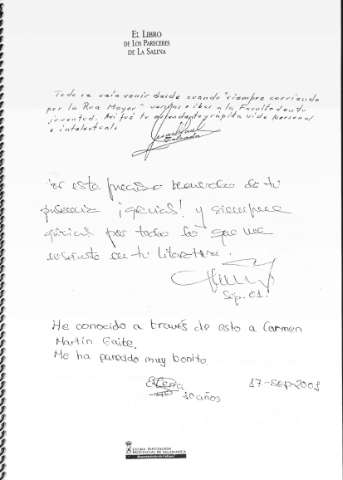 EL LIBRO
DE LOS PARECERES
DE LA SALINA
Todo se veía venir desde cuando "siempre corriendo
por la Rua Mayor" venías e ibas a la Facultad en tu
juventud. Así fué tu ascendente y rápida vida personal
e intelectual.
esta precioso recuerdo de tu
presencia ¡genial! y siempre
gracias por todo lo que me
en tu literatura.
Sep. 01.
He conocido a través de esto a Carmen
Martín Gaite.
Me ha parecido muy bonito
Elena
10 años
17-Sep-2001
EXCMA. DIPUTACIÓN
PROVINCIAL DE SALAMANCA